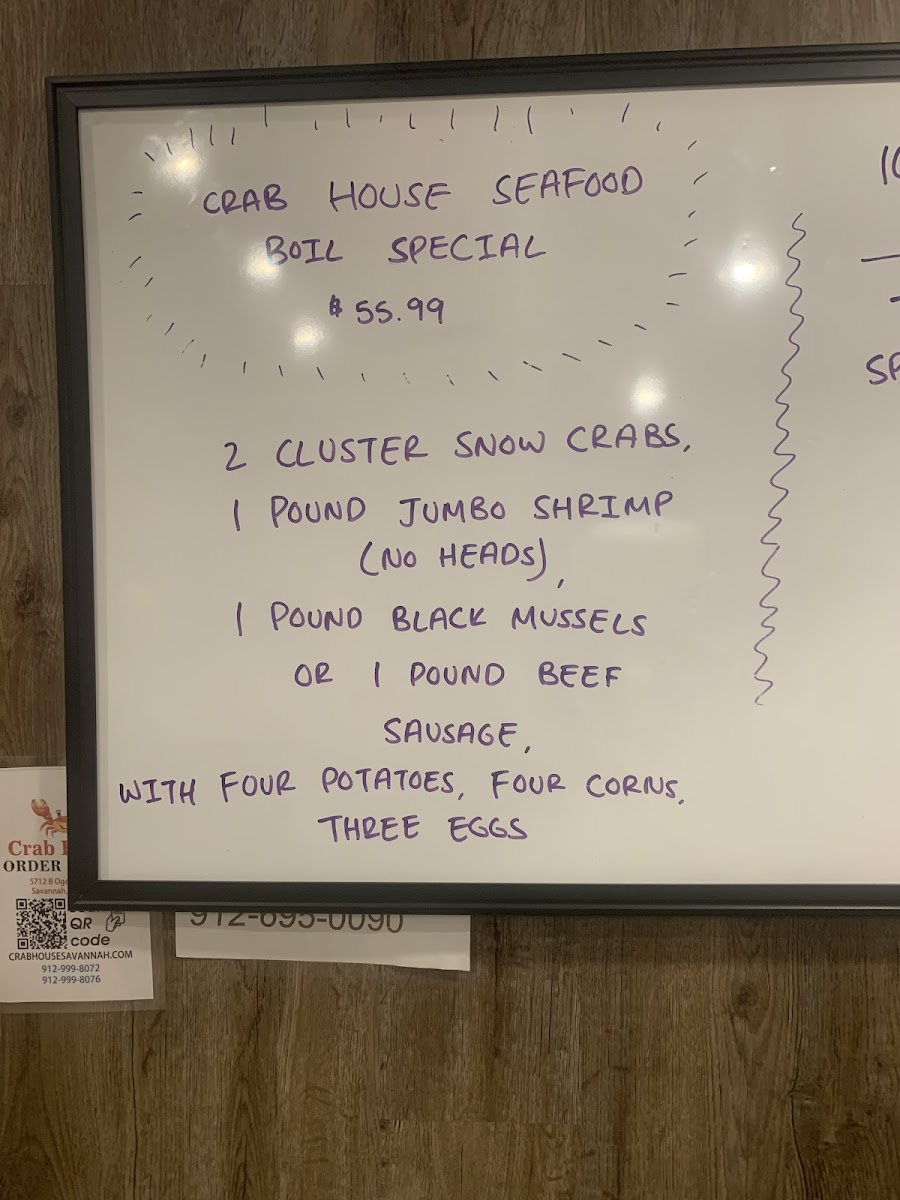 CRAB HOUSE SEAFOOD
BOIL SPECIAL
$55.99
2 CLUSTER SNOW CRABS,
1 POUND JUMBO SHRIMP
(NO HEADS),
1 POUND BLACK MUSSELS
OR 1 POUND BEEF
SAUSAGE,
WITH FOUR POTATOES, FOUR CORNS,
THREE EGGS
Crab
ORDER
5712 B
Savannah,
QR
code
CRABHOUSESAVANNAH.COM
912-999-8072
912-999-8076
912-695-0090